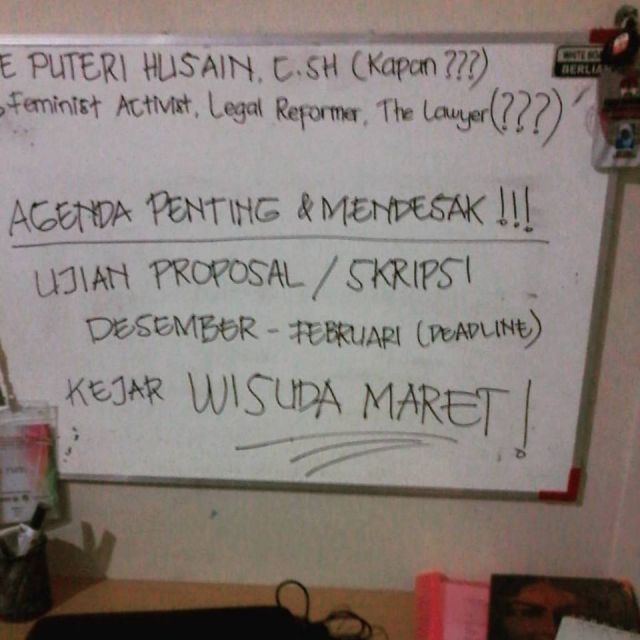 E PUTERI HUSAIN, C.SH (Kapan ???)
Feminist Activist, Legal Reformer, The Lawyer (???)
AGENDA PENTING & MENDESAK !!!
UJIAN PROPOSAL / SKRIPSI
DESEMBER - FEBRUARI (DEADLINE)
KEJAR WISUDA MARET !
WHITE BO
BERLI